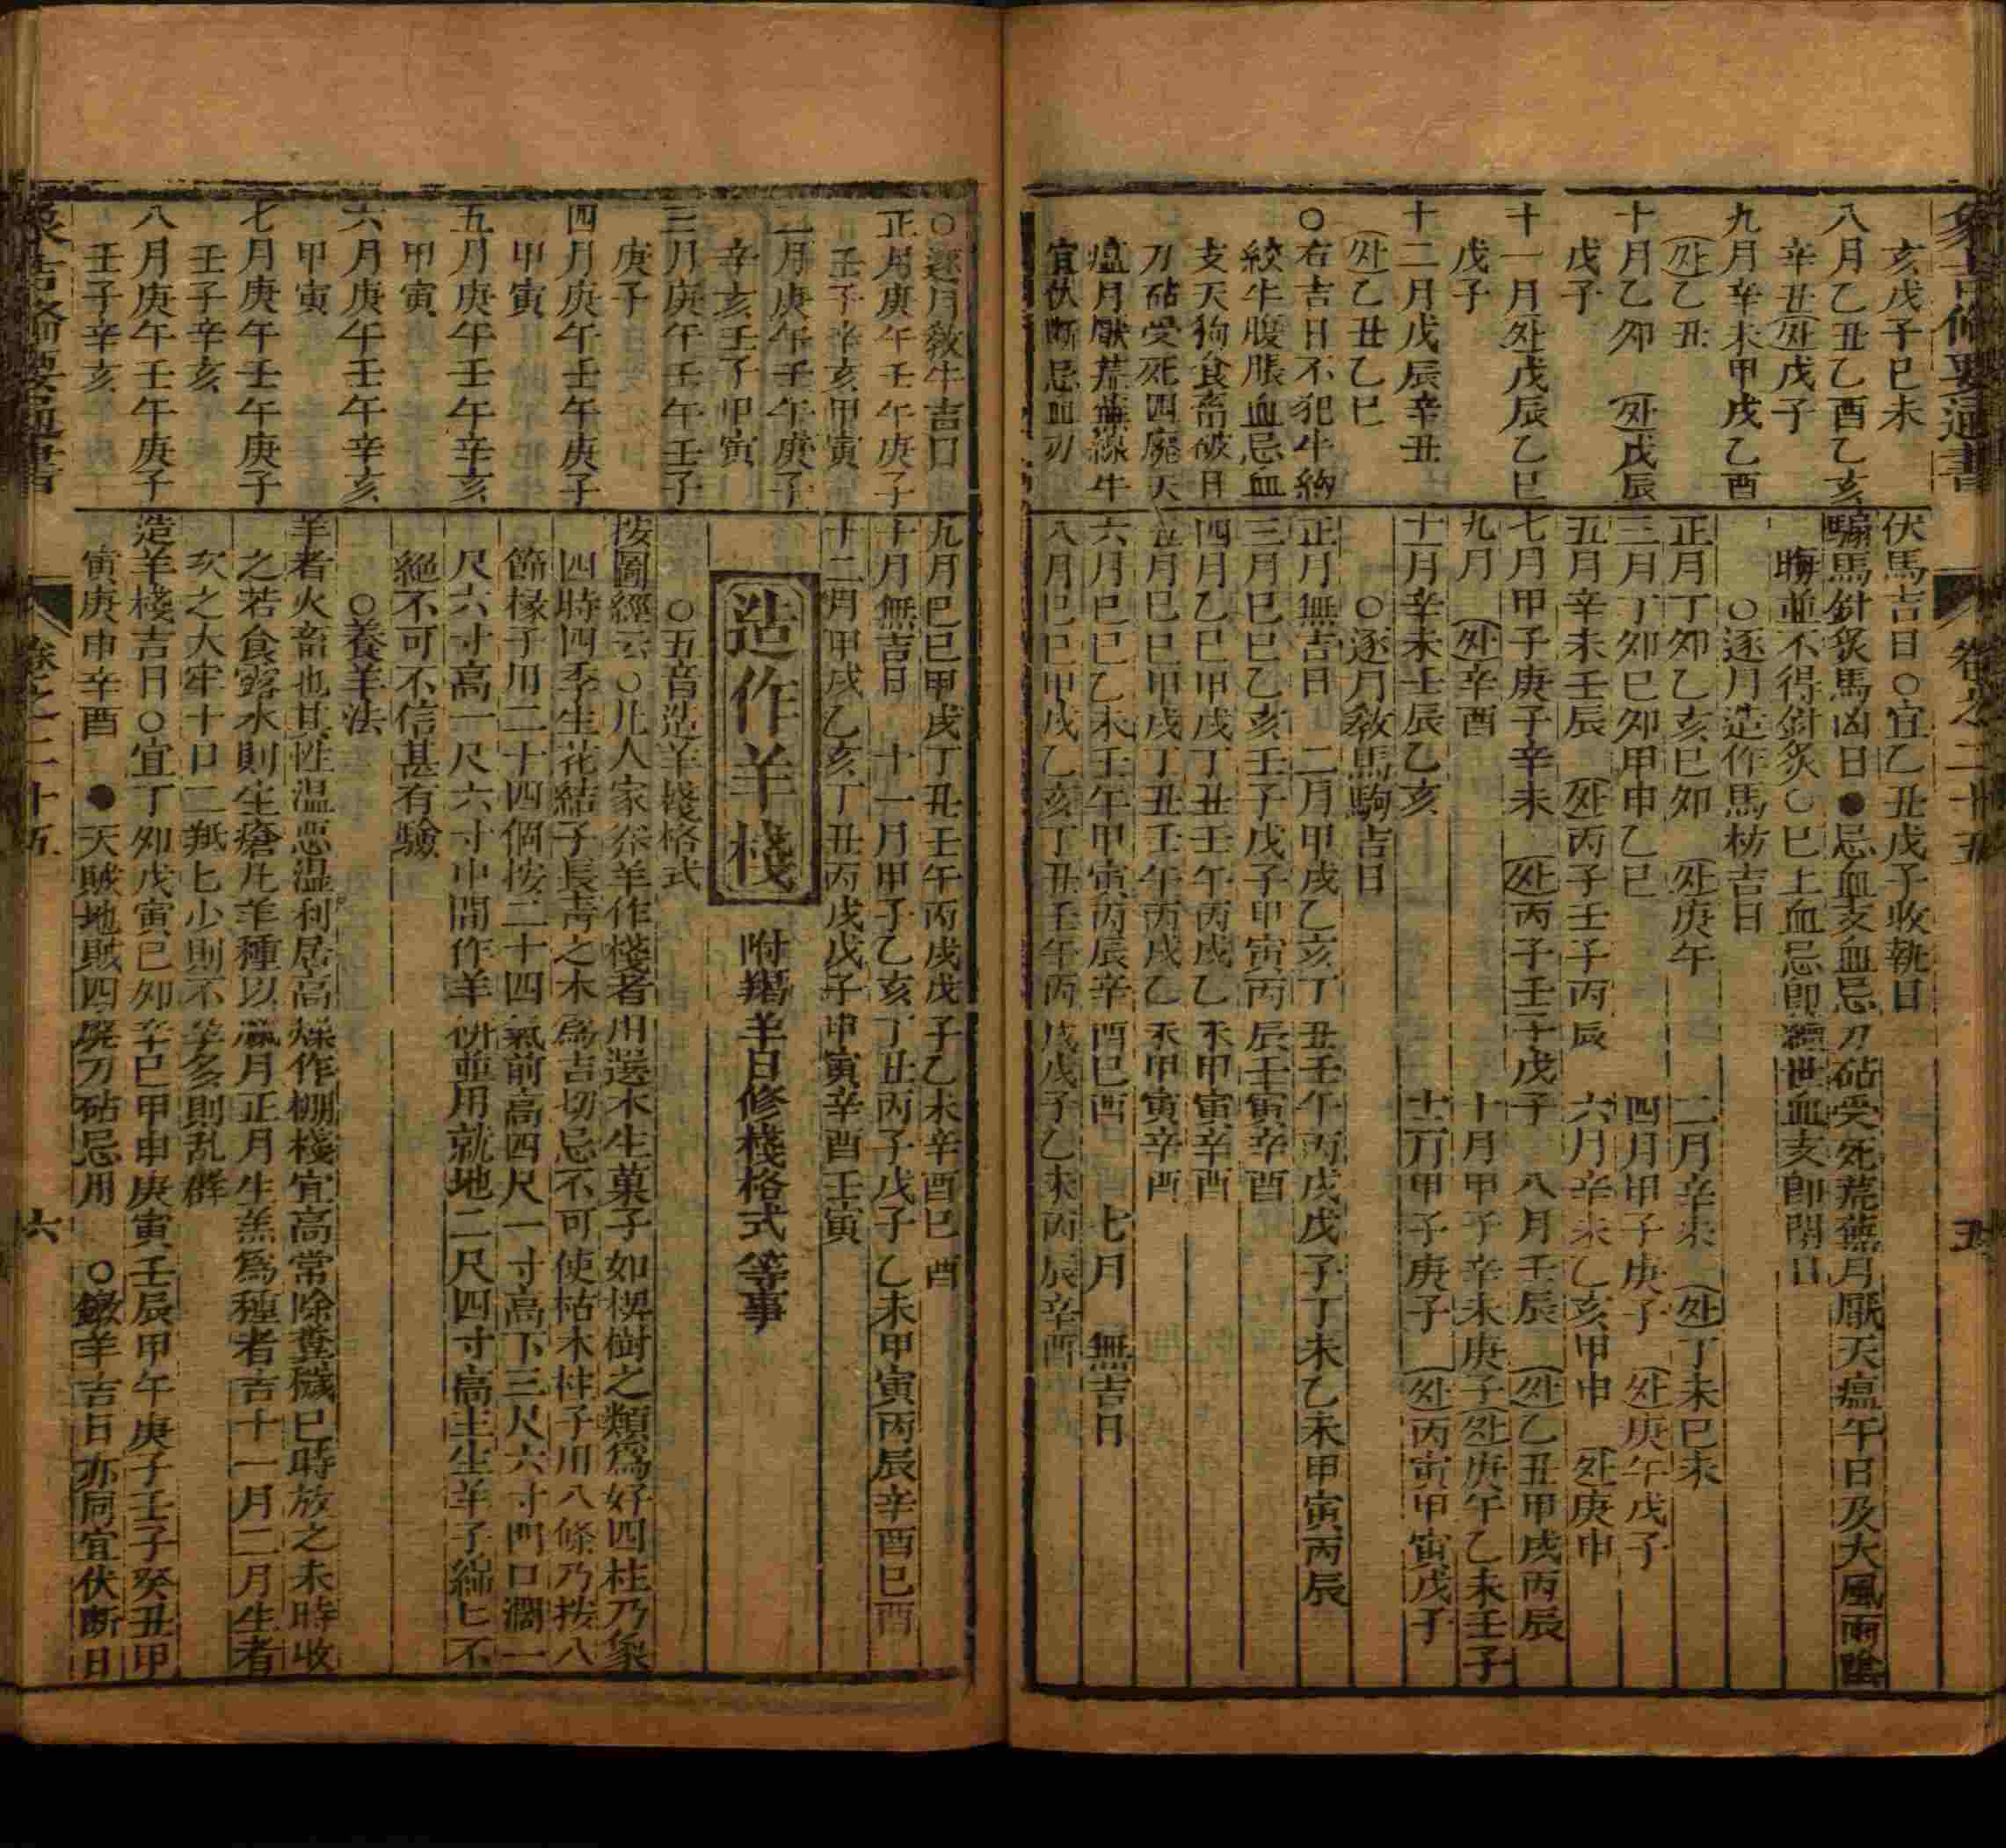 象吉備要通書
卷之二十五
五
亥戊子巳未
八月乙丑乙酉乙亥
辛丑(外)戊子
九月辛未甲戌乙酉
(外)乙丑
十月乙卯 (外)戊辰
戊子
十一月(外)戊辰乙巳
戊子
十二月戊辰辛丑
(外)乙丑乙巳
○右吉日不犯牛納
絞牛腹脹血忌血
支天狗食畜破日
刀砧受死四廢天
瘟月厭荒蕪縧牛
宜伏斷忌血刃
伏馬吉日○宜乙丑戊子收執日
騸馬針炙馬凶日●忌血支血忌刀砧受死荒蕪月厭天瘟午日及大風雨陰
晦並不得針炙○巳上血忌即續世血支即閉日
○逐月造作馬枋吉日
正月丁卯乙亥巳卯 (外)庚午 二月辛未 (外)丁未巳未
三月丁卯巳卯甲申乙巳 四月甲子庚子 (外)庚午戊子
五月辛未壬辰 (外)丙子壬子丙辰 六月辛未乙亥甲申 (外)庚申
七月甲子庚子辛未 (外)丙子壬子戊子 八月壬辰 (外)乙丑甲戌丙辰
九月 (外)辛酉 十月甲子辛未庚子(外)庚午乙未壬子
十一月辛未壬辰乙亥 十二月甲子庚子 (外)丙寅甲寅戊子
○逐月教馬駒吉日
正月無吉日 二月甲戌乙亥丁丑壬午丙戌戊子丁未乙未甲寅丙辰
三月巳巳乙亥壬子戊子甲寅丙辰壬寅辛酉
四月乙巳甲戌丁丑壬午丙戌乙未甲寅辛酉
五月巳巳甲戌丁丑壬午丙戌乙未甲寅辛酉
六月巳巳乙未壬午甲寅丙辰辛酉巳酉 七月 無吉日
八月巳巳甲戌乙亥丁丑壬午丙戌戊子乙未丙辰辛酉
○逐月教牛吉日
正月庚午壬午庚子
壬子辛亥甲寅
二月庚午壬午庚子
辛亥壬子甲寅
三月庚午壬午壬子
庚子
四月庚午壬午庚子
甲寅
五月庚午壬午辛亥
甲寅
六月庚午壬午辛亥
甲寅
七月庚午壬午庚子
壬子辛亥
八月庚午壬午庚子
壬子辛亥
九月巳巳甲戌丁丑壬午丙戌戊子乙未辛酉巳酉
十月無吉日 十一月甲子乙亥丁丑丙子戊子乙未甲寅丙辰辛酉巳酉
十二月甲戌乙亥丁丑丙戌戊子甲寅辛酉壬寅
造作羊棧 附羯羊日修棧格式等事
○五音造羊棧格式
按圖經云○凡人家养羊作棧者用選木生菓子如椇樹之類為好四柱乃象
四時四季生花結子長青之木為吉切忌不可使枯木柱子用八條乃按八
節椽子用二十四個按二十四氣前高四尺一寸高下三尺六寸門口濶一
尺六寸高一尺六寸中間作羊㭊並用就地二尺四寸高主生羊子綿匕不
絕不可不信甚有驗
○養羊法
羊者火畜也其性温悪溫利居高燥作棚棧宜高常除糞穢巳時放之未時收
之若食露水則生瘡凡羊種以臘月正月生羔為種者吉十一月二月生者
次之大牢十口二羝匕少則不孕多則乱群
造羊棧吉日○宜丁卯戊寅巳卯辛巳甲申庚寅壬辰甲午庚子壬子癸丑甲
寅庚申辛酉 ●天賊地賊四廢刀砧忌用 ○鐓羊吉日亦同宜伏斷日
卷之二十五
六